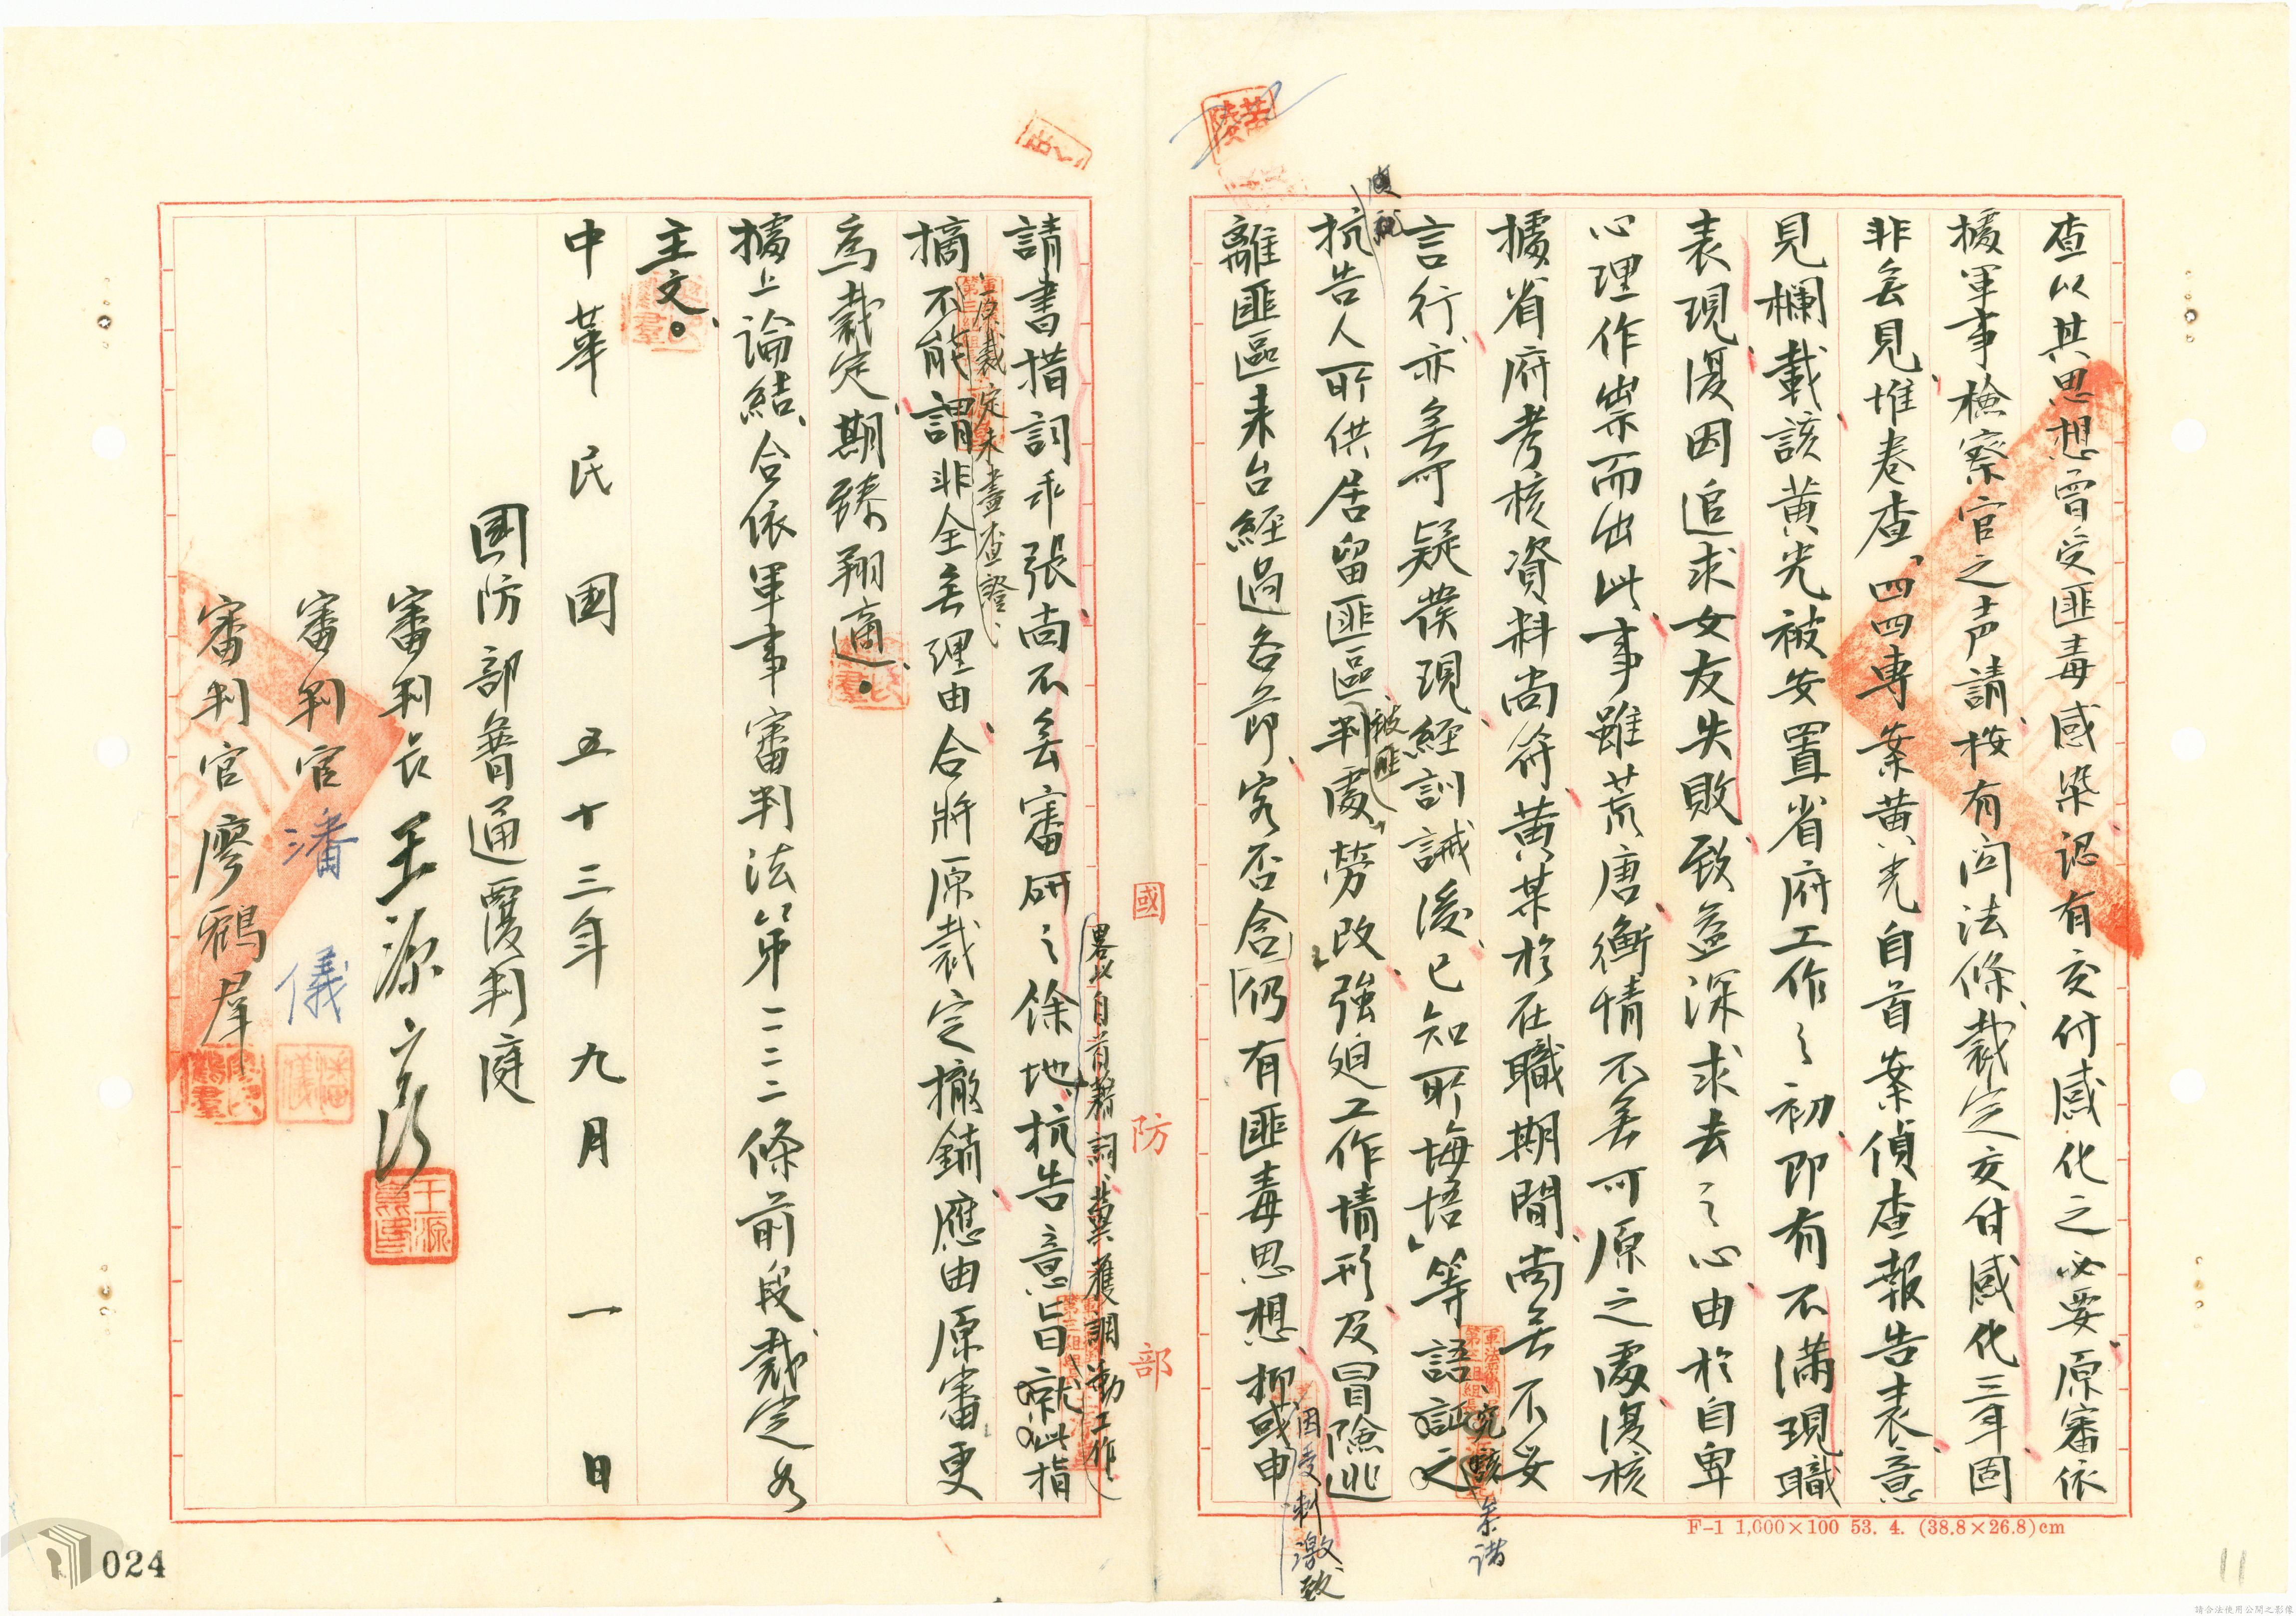 查以其思想曾受匪毒感染認有交付感化之必要原審依
據軍事檢察官之声請、按有関法條、裁定交付感化三年固
非無見、惟卷查、四四專案黃光自首案偵查報告表、意
見欄載該黃光被安置省府工作之初、即有不滿現職
表現、復因追求女友失敗、致益深求去之心、由於自卑
心理作祟而出此、事雖荒唐、衡情不無可原之處、復核
據省府考核資料尚符、黃某於在職期間、尚無不妥
言行、亦無可疑發現、經訓誡後、已知所悔悟」等語、証之
究該
案諸
抗告人所供居留匪區判處勞改、強迫工作情形、及冒險逃
被匪
離匪區來台經過各節、實否含仍有匪毒思想、抑或申
因受刺激致
國防部
請書措詞乖張、尚不無審研之餘地、抗告意旨、就此指
畧以自首藉詞、冀獲調動工作、
摘、不能謂非全無理由、合將原裁定撤銷、應由原審更
原裁定未盡查證、
為裁定、期臻翔適、。
據上論結、合依軍事審判法第二二二條前段、裁定如
主文。
中華民國五十三年九月一日
國防部普通覆判庭
審判長王源
審判官潘儀
審判官廖鶴羣
潘儀
F-1 1,000×100 53. 4. (38.8×26.8)cm
024
11
請合法使用公開之影像